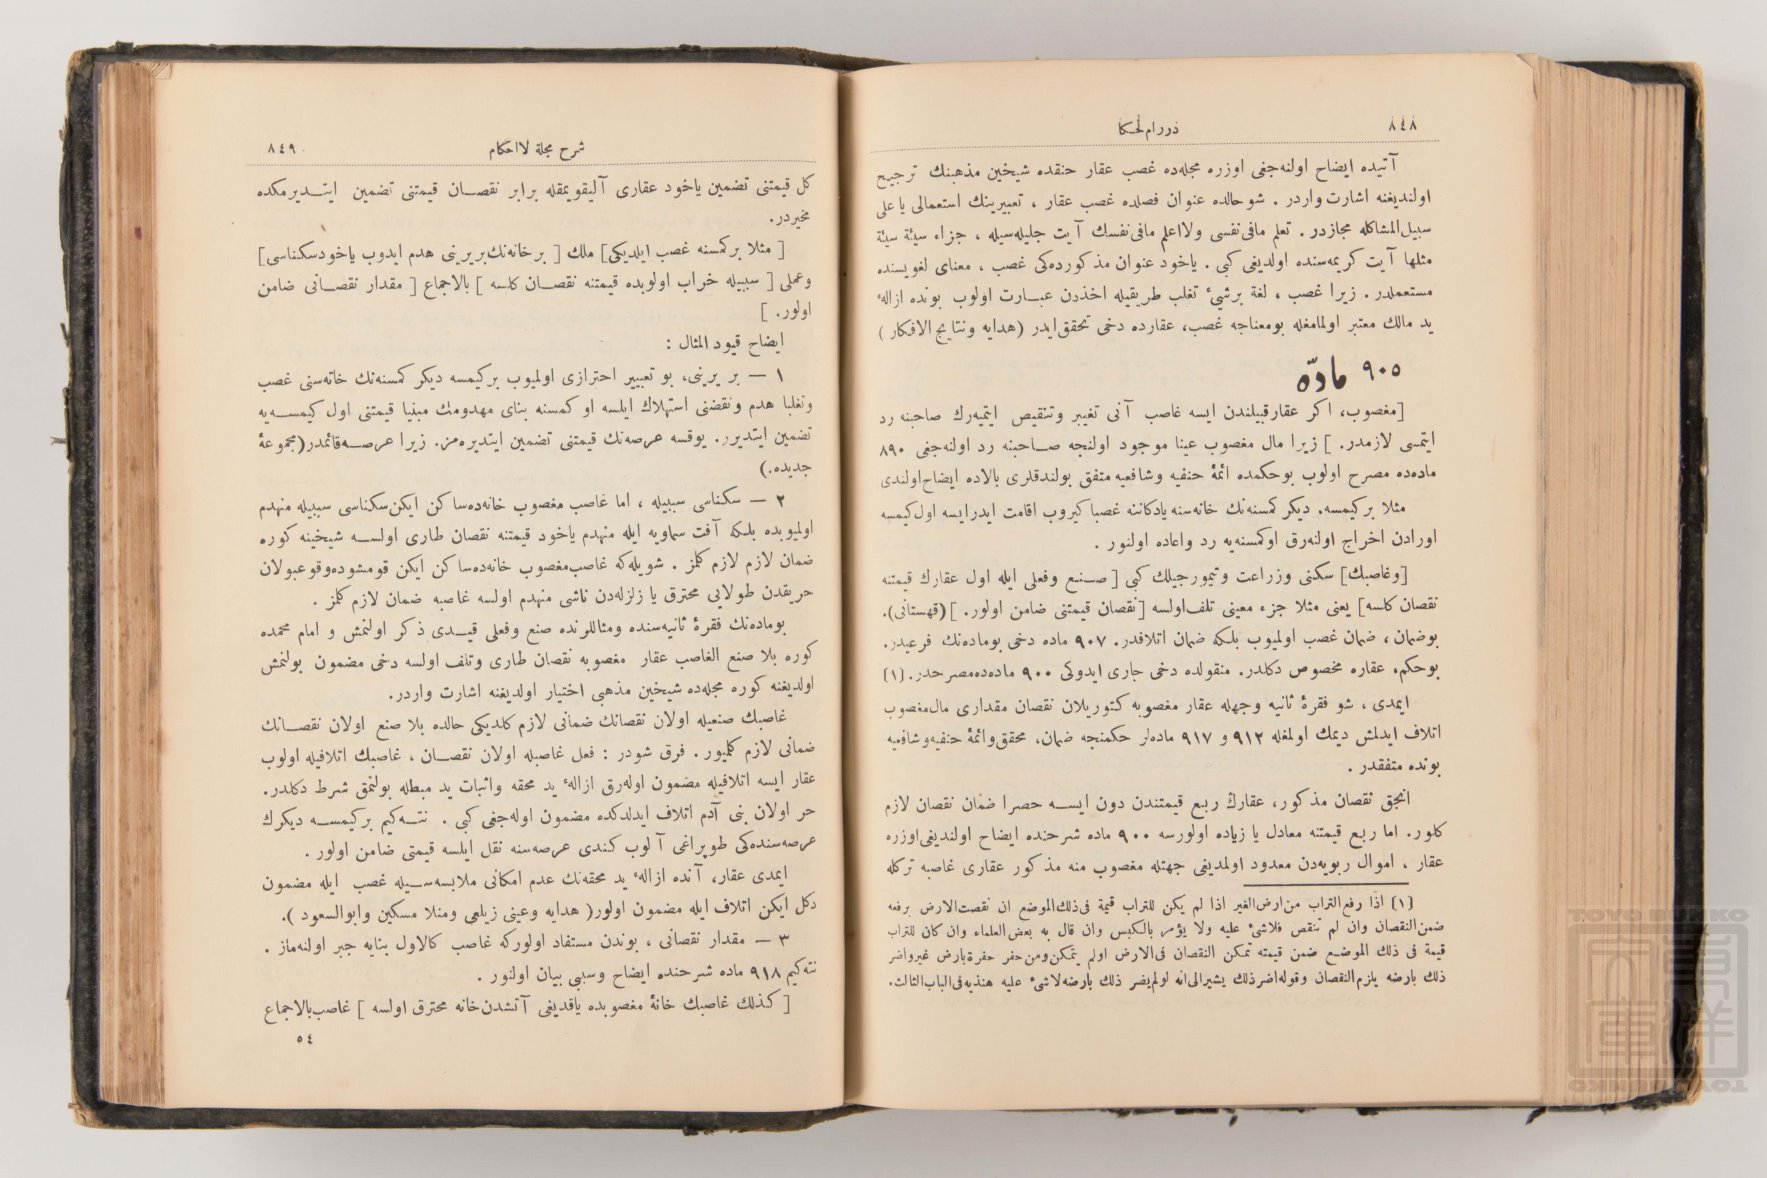 ٨٤٨
درر الحكام
آتیده ایضاح اولنه‌جغی اوزره مجله‌ده غصب عقار حقنده شیخین مذهبنك ترجیح
اولندیغنه اشارت واردر . شو حالده عنوان فصلده غصب عقار ، تعبیرینك استعمالی یا علی
سبیل المشاكله مجازدر . تعلم مافی نفسی ولا اعلم مافی نفسك آیت جلیله‌سیله ، جزاء سیئة سیئة
مثلها آیت كریمه‌سنده اولدیغی كبی . یاخود عنوان مذكورده‌كی غصب ، معنای لغویسنده
مستعملدر . زیرا غصب ، لغة برشیء تغلب طریقیله اخذدن عبـارت اولوب بونده ازالهٔ
ید مالك معتبر اولمامغله بومعناجه غصب، عقارده دخی تحقق ایدر (هدایه ونتایج الافكار )
٩٠٥ مادّه
[مغصوب، اكر عقار قبیلندن ایسه غاصب آنی تغییر وتنقیص ایتمیه‌رك صاحبنه رد
ایتمسی لازمدر. ] زیرا مال مغصوب عینا موجود اولنجه صـاحبنه رد اولنه‌جغی ٨٩٠
ماده‌ده مصرح اولوب بوحكمده ائمهٔ حنفیه وشافعیه متفق بولندقلری بالاده ایضاح اولندی
مثلا بركیمسه، دیكر كمسنه‌نك خانه‌سنه یادكاننه غصبا كیروب اقامت ایدرایسه اول كیمسه
اورادن اخراج اولنه‌رق اوكمسنه‌یه رد واعاده اولنور .
[وغاصبك] سكنی وزراعت وتیمورجیلك كبی [ صـنع وفعلی ایله اول عقارك قیمتنه
نقصان كلسه] یعنی مثلا جزء معینی تلف اولسه [نقصان قیمتنی ضامن اولور. ] (قهستانی).
بوضمان ، ضمان غصب اولمیوب بلكه ضمان اتلافدر. ٩٠٧ ماده دخی بوماده‌نك فرعیدر.
بوحكم، عقاره مخصوص دكلدر. منقولده دخی جاری ایدوكی ٩٠٠ ماده‌ده مصرحدر. (١)
ایمدی ، شو فقرهٔ ثانیه وجهله عقار مغصوبه كتوریلان نقصان مقداری مال مغصوب
اتلاف ایدلمش دیمك اولمغله ٩١٢ و ٩١٧ ماده‌لر حكمنجه ضمان، محقق وائمهٔ حنفیه وشافعیه
بونده متفقدر .
انجق نقصان مذكور، عقارك ربع قیمتندن دون ایسـه حصرا ضمان نقصان لازم
كلور. اما ربع قیمتنه معادل یا زیاده اولورسه ٩٠٠ ماده شرحنده ایضاح اولندیغی اوزره
عقار ، اموال ربویه‌دن معدود اولمدیغی جهتله مغصوب منه مذكور عقاری غاصبه تركله
(١) اذا رفع التراب من ارض الغیر اذا لم یكن للتراب قیمة فی ذلك الموضع ان نقصت الارض برفعه
ضمن النقصان وان لم تنقص فلاشیء علیه ولا یؤمر بالكبس وان قال به بعض العلماء وان كان للتراب
قیمة فی ذلك الموضـع ضمن قیمته تمكن النقصان فی الارض اولم یتمكن ومن حفر حفرة بارض غیر واضر
ذلك بارضه یلزم النقصان وقوله اضر ذلك یشیر الی انه لولم یضر ذلك بارضه لاشیء علیه هندیه فی الباب الثالث.
شرح مجلة الاحكام
٨٤٩
كل قیمتنی تضمین یاخود عقاری آلیقویمقله برابر نقصـان قیمتنی تضمین ایتـدیرمكده
مخیردر.
[ مثلا بركمسنه غصب ایلدیكی] ملك [ برخانه‌نك بریرینی هدم ایدوب یاخودسكناسی]
وعملی [ سببیله خراب اولوبده قیمتنه نقصـان كلسه ] بالاجماع [ مقدار نقصـانی ضامن
اولور. ]
ایضاح قیود المثال :
١ — بر یرینی، بو تعبیر احترازی اولمیوب بركیمسه دیكر كمسنه‌نك خانه‌سنی غصب
وتغلبا هدم ونقضنی استهلاك ایلسه او كمسنه بنای مهدومك مبنیا قیمتنی اول كیمسـه‌یه
تضمین ایتدیرر. یوقسه عرصه‌نك قیمتنی تضمین ایتدیره‌مز. زیرا عرصـه قائمدر (مجموعهٔ
جدیده.)
٢ — سكناسی سببیله ، اما غاصب مغصوب خانه‌ده ساكن ایكن سكناسی سببیله منهدم
اولمیوبده بلكه آفت سماویه ایله منهدم یاخود قیمتنه نقصان طاری اولسـه شیخینه كوره
ضمان لازم لازم كلمز . شویله‌كه غاصب مغصوب خانه‌ده ساكن ایكن قومشوده وقوعبولان
حریقدن طولایی محترق یا زلزله‌دن ناشی منهدم اولسه غاصبه ضمان لازم كلمز .
بوماده‌نك فقرهٔ ثانیه‌سنده ومثاللرنده صنع وفعلی قیـدی ذكر اولنمش و امام محمده
كوره بلا صنع الغاصب عقار مغصوبه نقصان طاری وتلف اولسه دخی مضمون بولنمش
اولدیغنه كوره مجله‌ده شیخین مذهبی اختیار اولدیغنه اشارت واردر.
غاصبك صنعیله اولان نقصانك ضمانی لازم كلدیكی حالده بلا صنع اولان نقصـانك
ضمانی لازم كلمیور. فرق شودر : فعل غاصبله اولان نقصـان ، غاصبك اتلافیله اولوب
عقار ایسه اتلافیله مضمون اوله‌رق ازالهٔ ید محقه واثبات ید مبطله بولنمق شرط دكلدر.
حر اولان بنی آدم اتلاف ایدلدكده مضمون اوله‌جغی كبی . نتـه‌كیم بركیمسـه دیكرك
عرصه‌سنده‌كی طوپراغی آلوب كندی عرصه‌سنه نقل ایلسه قیمتی ضامن اولور .
ایمدی عقار، آنده ازالهٔ ید محقه‌نك عدم امكانی ملابسه‌سـیله غصب ایله مضمون
دكل ایكن اتلاف ایله مضمون اولور( هدایه وعینی زیلعی ومنلا مسكین وابوالسعود ).
٣ — مقدار نقصانی ، بوندن مستفاد اولوركه غاصب كالاول بنایه جبر اولنه‌ماز .
نته‌كیم ٩١٨ ماده شرحنده ایضاح وسببی بیان اولنور .
[ كذلك غاصبك خانهٔ مغصوبده یاقدیغی آتشدن خانه محترق اولسه ] غاصب بالاجماع
٥٤
TOYO BUNKO